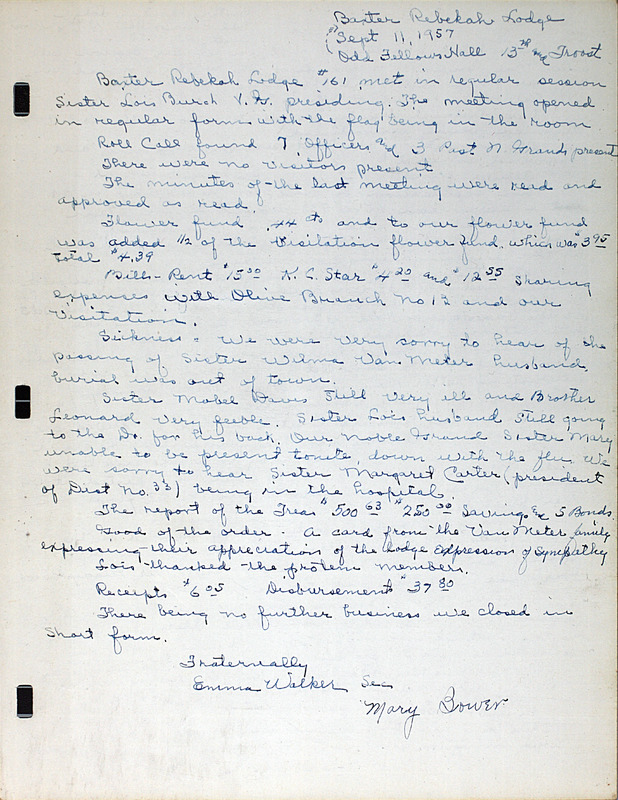 Baxter Rebekah Lodge
Sept 11, 1957
Odd Fellows Hall 13th and Troost
Baxter Rebekah Lodge #161 met in regular session
Sister Lois Burch V.G. presiding. The meeting opened
in regular form with the flag being in the room
Roll Call found 7 Officers and 3 Past N. Grands present
There were no visitors present
The minutes of the last meeting were read and
approved as read.
Flower fund .44 cts and to our flower fund
was added 1/2 of the Visitation flower fund, which was 3.95
total $4.39
Bills - Rent $15.00 K.C. Star $4.20 and $12.55 sharing
expenses with Olive Branch No 12 and our
Visitation.
Sickness: We were very sorry to hear of the
passing of Sister Wilma Van Meter husband,
burial was out of town.
Sister Mabel Davis still very ill and Brother
Leonard very feeble. Sister Lois husband still going
to the Dr. for his back. Our Noble Grand Sister Mary
unable to be present tonite, down with the flu. We
were sorry to hear Sister Margaret Carter (president
of Dist No. 33) being in the hospital.
The report of the Treas $500.63 $250.00 Savings & 5 Bonds
Good of the order. A card from the Van Meter family
expressing their appreciation of the lodge expression of Sympathy
Lois thanked the protem members.
Receipts $6.05 Disbursement $37.80
There being no further business we closed in
short form.
Fraternally
Emma Walker Sec
Mary Bower